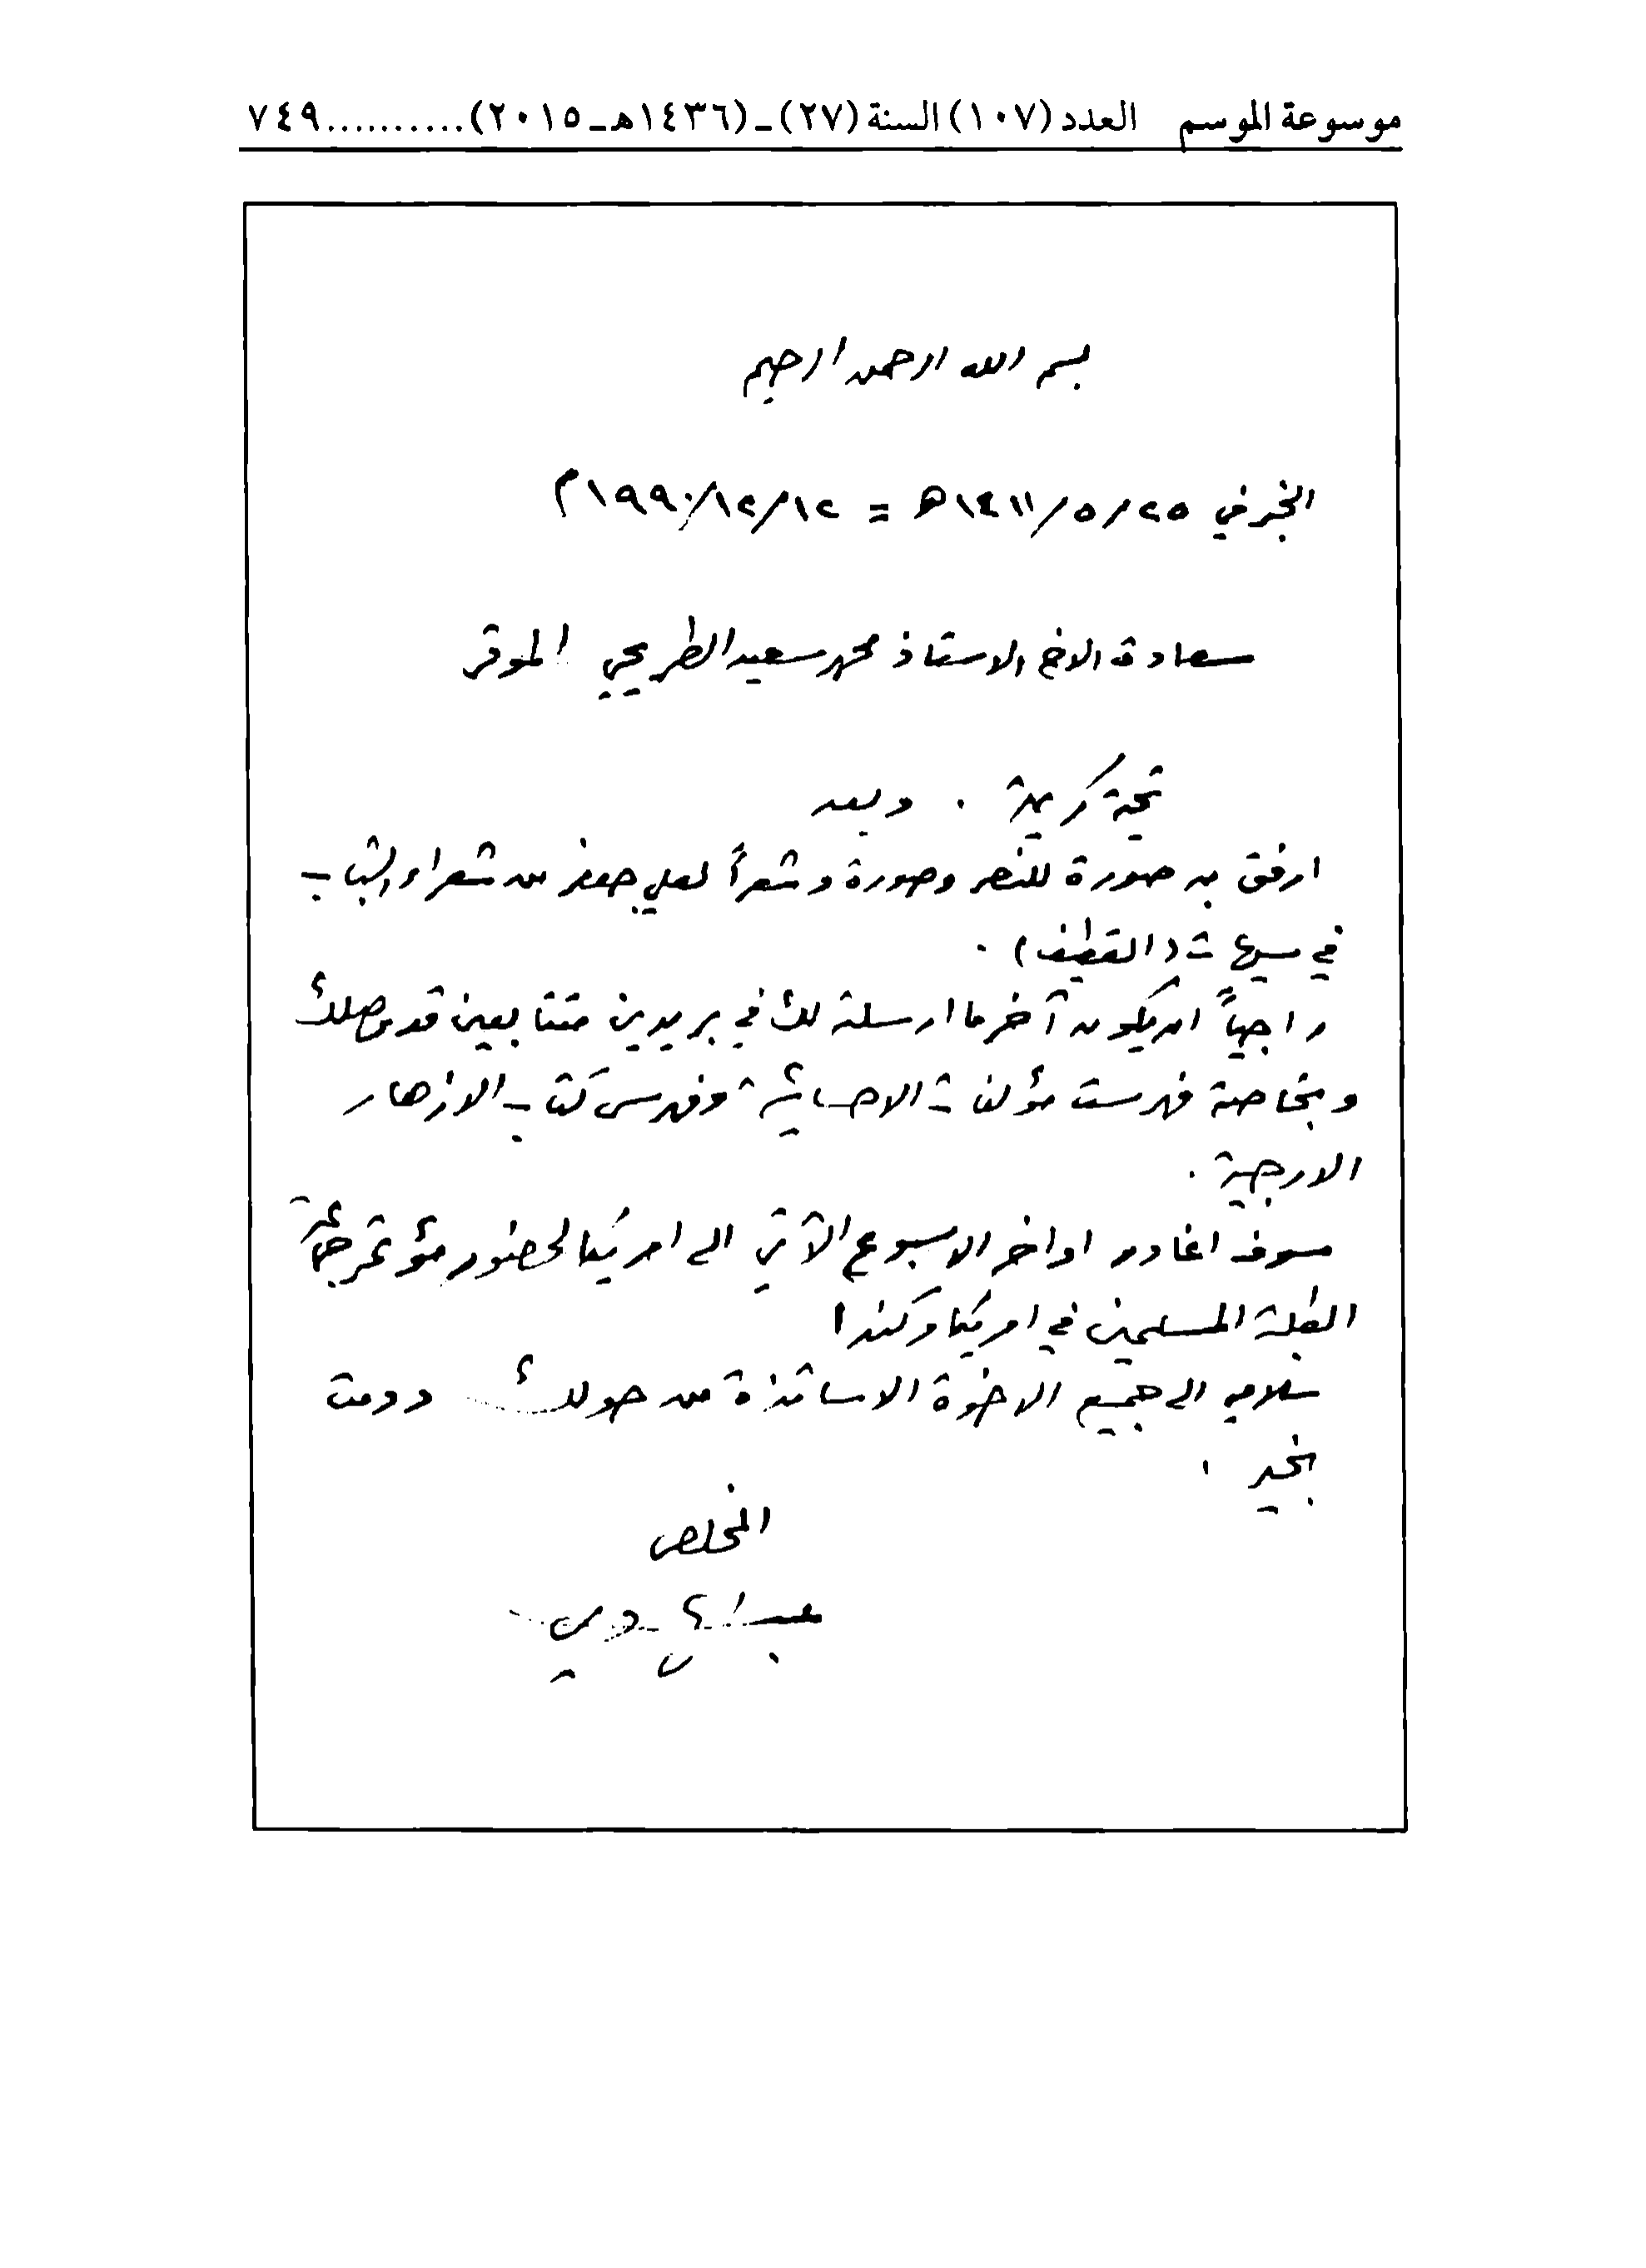 موسوعة الموسم العدد (١٠٧) السنة (٢٧) ـ (١٤٣٦هـ ـ ٢٠١٥)..........٧٤٩
بسم الله الرحمن الرحيم
الخبر في ٢٥/٥/١٤١١هـ = ١٢/١٢/١٩٩٠م
سعادة الاخ الاستاذ محمد سعيد الطريحي الموقر
تحية كريمة . وبعد
ارفق به صورة للنصر وصورة وشعراً لعلي جعفر من شعراء الشباب
في سيهات (القطيف) .
راجياً ان يكون آخر ما ارسلته لك في بريدين متتابعين قد وصلك
وبخاصة فهرست مؤلفات الاحسائية وفهرس كتاب الازهار
الارجية .
سوف اغادر اواخر الاسبوع الآتي الى امريكا لحضور مؤتمر جماعة
الطلبة المسلمين في امريكا وكندا
سلامي الى جميع الاخوة الاساتذة من حولك ودمت
بخير .
المخلص